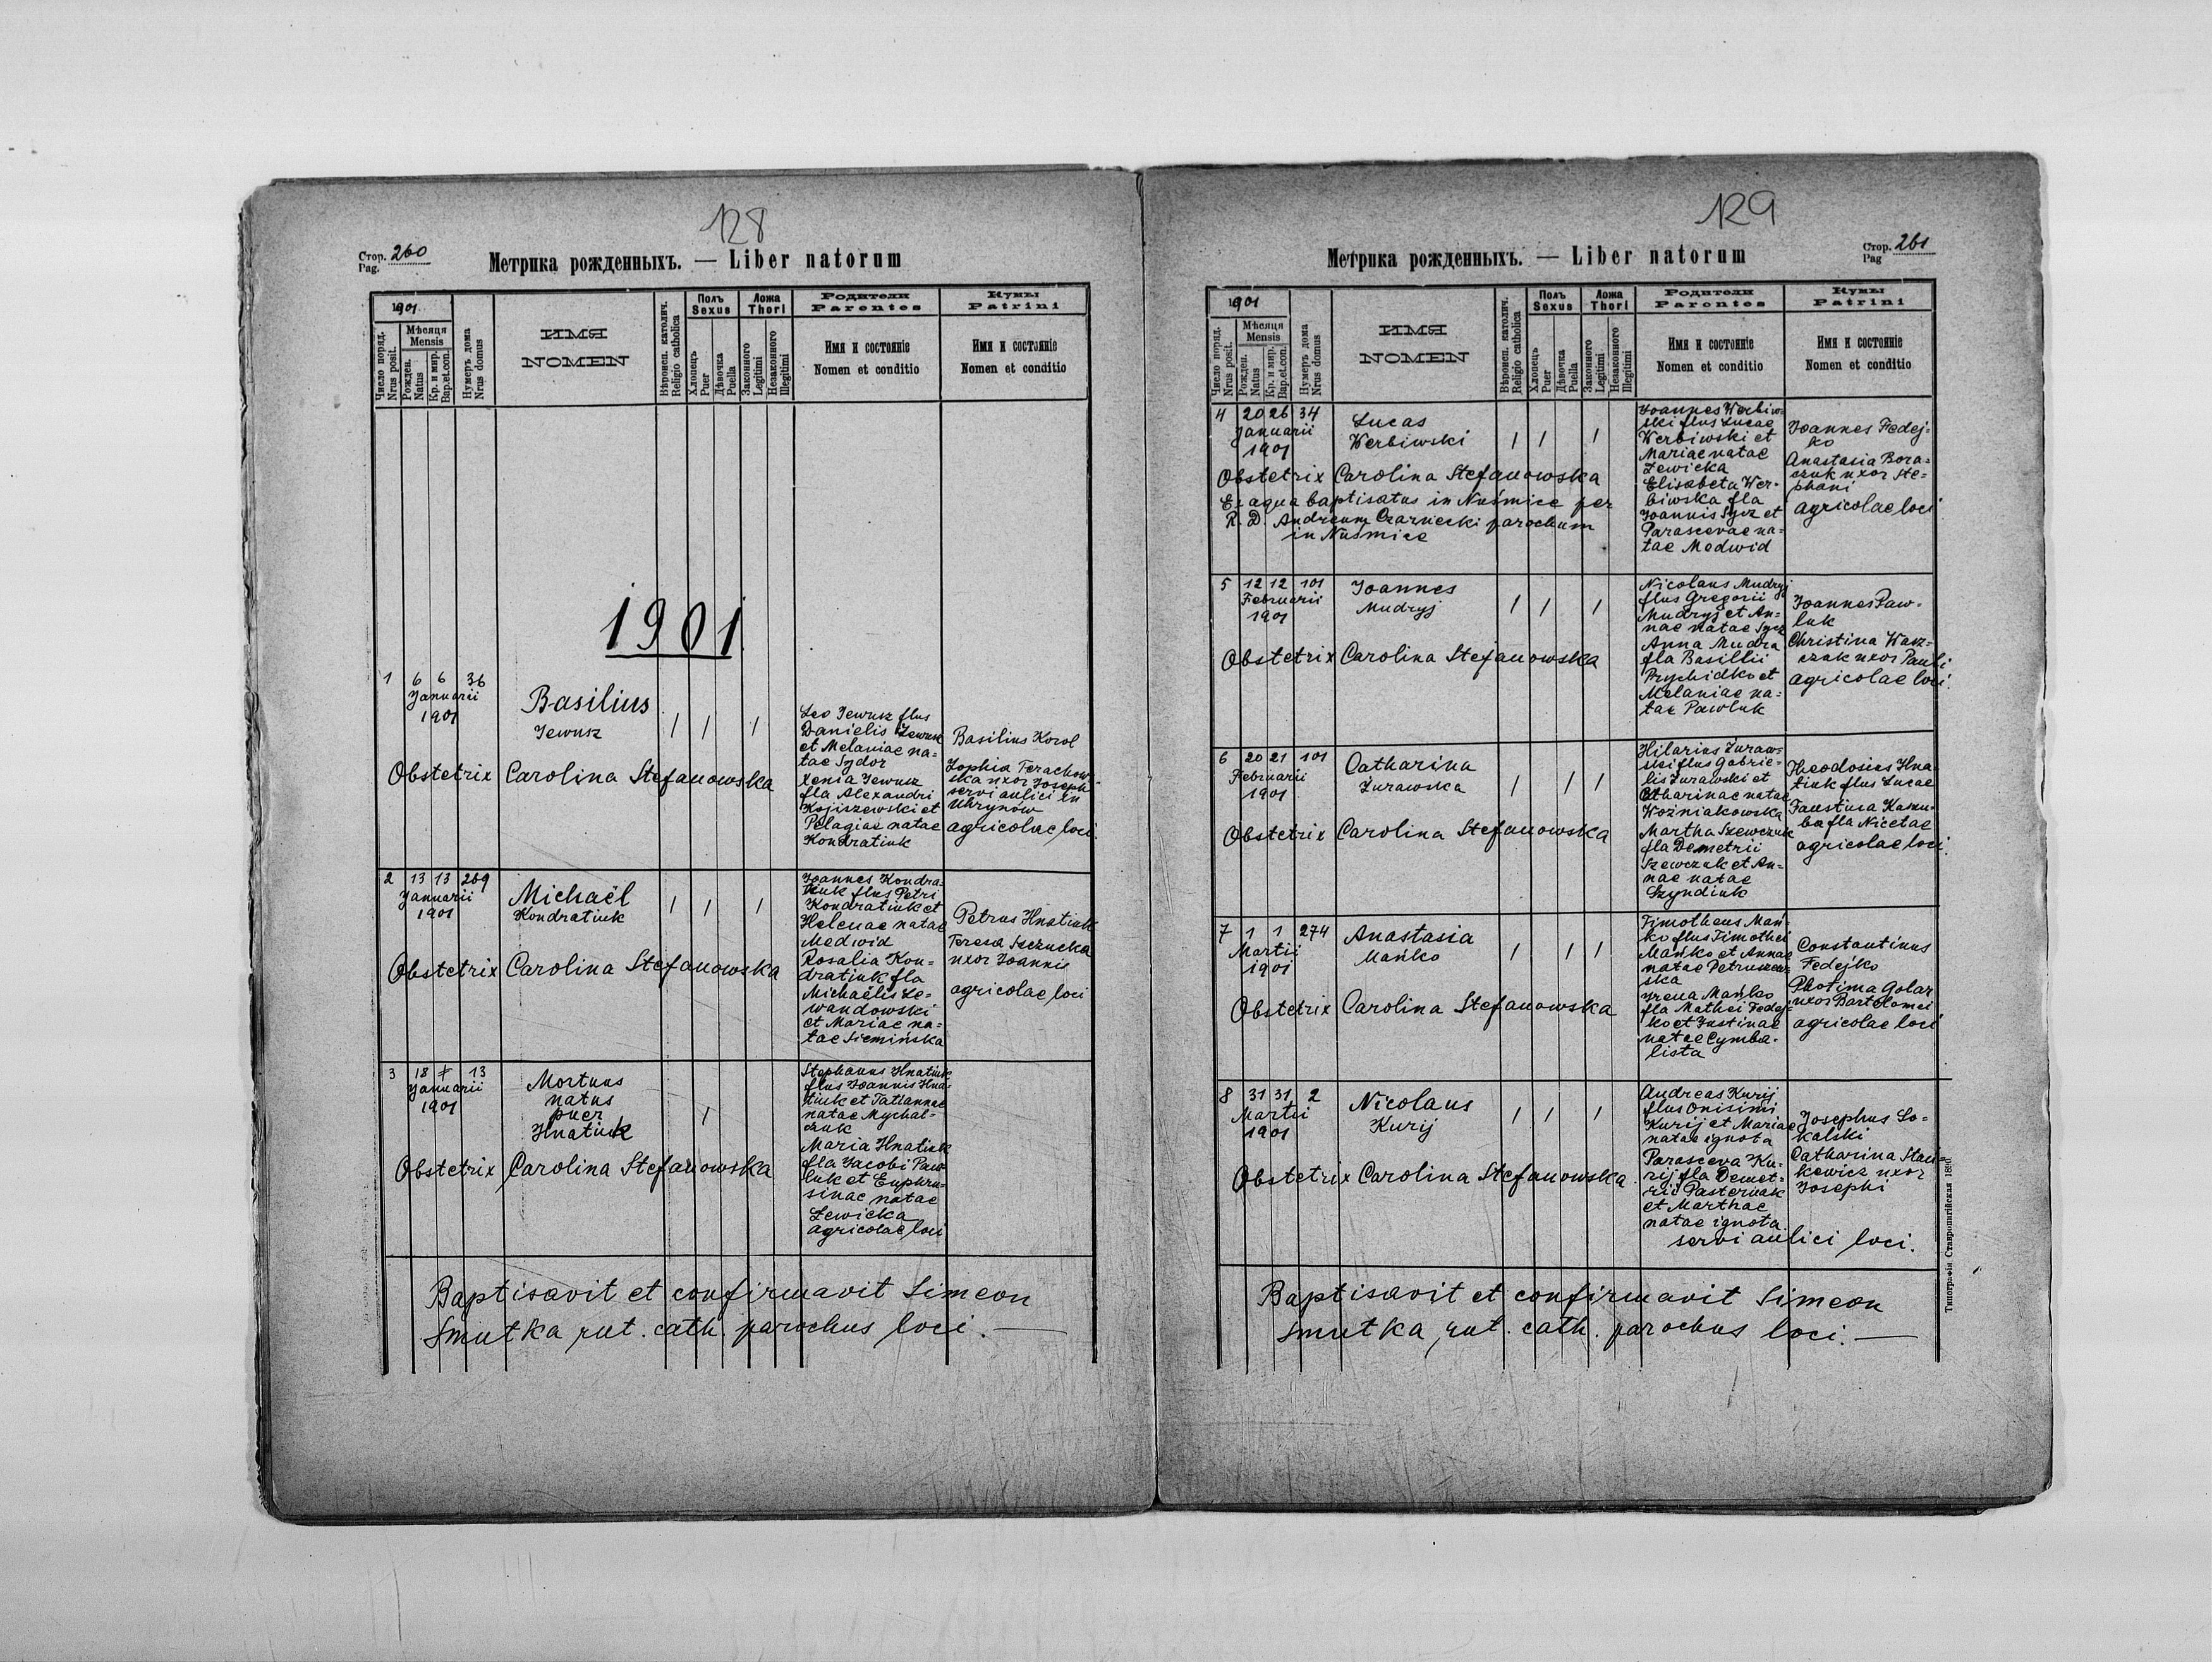 128
Стор. 260
Pag.
Метрика рожденныхъ. — Liber natorum
1901
Число поряд.
Nrus posit.
Мѣсяця
Mensis
Рожден.
Natus
Кр. и мир.
Bap. et. con.
Нумеръ дома
Nrus domus
ИМЯ
NOMEN
Вѣроисп. католич.
Religio catholica
Полъ
Sexus
Хлопець
Puer
Дѣвочка
Puella
Ложа
Thori
Законного
Legitimi
Незаконного
Illegitimi
Родители
Parentes
Имя и состояніе
Nomen et conditio
Кумы
Patrini
Имя и состояніе
Nomen et conditio
1901
1 6 6 36
Januarii
1901
Basilius
Jewusz
1 1 1
Leo Jewusz flus
Danielis Jewusz
et Melaniae na=
tae Sydor
Xenia Jewusz
fla Alexandri
Kojiszewski et
Pelagiae natae
Kondratiuk
Basilius Korol
Zophia Terachow=
ska uxor Joseph
servi aulici in
Uhrynów
agricolae loci.
Obstetrix Carolina Stefanowska
2 13 13 269
Januarii
1901
Michaël
Kondratiuk
1 1 1
Joannes Kondra=
tiuk flus Petri
Kondratiuk et
Helenae natae
Medwid
Rosalia Kon=
dratiuk fla
Michaëlis Le=
wandowski
et Mariae na=
tae Siemińska
Petrus Hnatiuk
Teresa Szczucka
uxor Joannis
agricolae loci
Obstetrix Carolina Stefanowska
3 18 † 13
Januarii
1901
Mortuus
natus
puer
Hnatiuk
1
Stephanus Hnatiuk
flus Joannis Hna=
tiuk et Tatiannae
natae Mychal=
czuk
Maria Hnatiuk
fla Jacobi Paw=
luk et Euphro=
sinae natae
Lewicka
agricolae loci
Obstetrix Carolina Stefanowska
Baptisavit et confirmavit Simeon
Smutka, rut. cath. parochus loci. —
129
Стор. 261
Pag
Метрика рожденныхъ. — Liber natorum
1901
Число поряд.
Nrus posit.
Мѣсяця
Mensis
Рожден.
Natus
Кр. и мир.
Bap. et. con.
Нумеръ дома
Nrus domus
ИМЯ
NOMEN
Вѣроисп. католич.
Religio catholica
Полъ
Sexus
Хлопець
Puer
Дѣвочка
Puella
Ложа
Thori
Законного
Legitimi
Незаконного
Illegitimi
Родители
Parentes
Имя и состояніе
Nomen et conditio
Кумы
Patrini
Имя и состояніе
Nomen et conditio
4 20 26 34
Januarii
1901
Lucas
Werbiwski
1 1 1
Joannes Werbiw=
ski flus Lucae
Werbiwski et
Mariae natae
Lewicka
Elisabeta Wer=
biwska fla
Joannis Sycz et
Parascevae na=
tae Medwid
Joannes Fedej=
ko
Anastasia Bora=
czuk uxor Ste=
phani
agricolae loci
Obstetrix Carolina Stefanowska
Ex aqua baptisatus in Nuśmice per
R. D. Andream Czarnecki parochum
in Nuśmice
5 12 12 101
Februarii
1901
Joannes
Mudryj
1 1 1
Nicolaus Mudryj
flus Gregorii
Mudryj et An=
nae natae Sycz
Anna Mudra
fla Basilii
Prychidko et
Melaniae na=
tae Pawluk
Joannes Paw=
luk
Christina Wasz=
czuk uxor Pauli
agricolae loci.
Obstetrix Carolina Stefanowska
6 20 21 101
Februarii
1901
Catharina
Żurawska
1 1 1
Hilarius Żuraw=
ski flus Gabrie=
lis Żurawski et
Catharinae natae
Woźniakowska
Martha Szewczuk
fla Demetrii
Szewczuk et An=
nae natae
Szyndiuk
Theodosius Hna=
tiuk flus Lucae
Faustina Kaszu=
ba fla Nicetae
agricolae loci.
Obstetrix Carolina Stefanowska
7 1 1 274
Martii
1901
Anastasia
Mańko
1 1 1
Timotheus Mań=
ko flus Timothei
Mańko et Annae
natae Petruszew=
ska
Irena Mańko
fla Mathei Fedej=
ko et Justinae
natae Cymba=
lista
Constantinus
Fedejko
Photima Golar
uxor Bartolomei
agricolae loci
Obstetrix Carolina Stefanowska
8 31 31 2
Martii
1901
Nicolaus
Kurij
1 1 1
Andreas Kurij
flus Onisimi
Kurij et Mariae
natae ignota
Parasceva Ku=
rij fla Demet=
rii Pasternak
et Marthae
natae ignota
servi aulici loci.
Josephus So=
kalski
Catharina Stan=
kewicz uxor
Josephi
Obstetrix Carolina Stefanowska
Baptisavit et confirmavit Simeon
Smutka, rut. cath. parochus loci. —